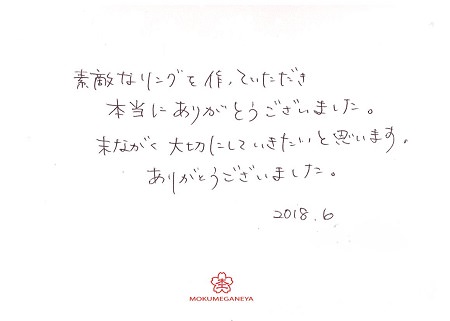 素敵なリングを作っていただき
本当にありがとうございました。
末ながく大切にしていきたいと思います。
ありがとうございました。
2018.6
MOKUMEGANEYA